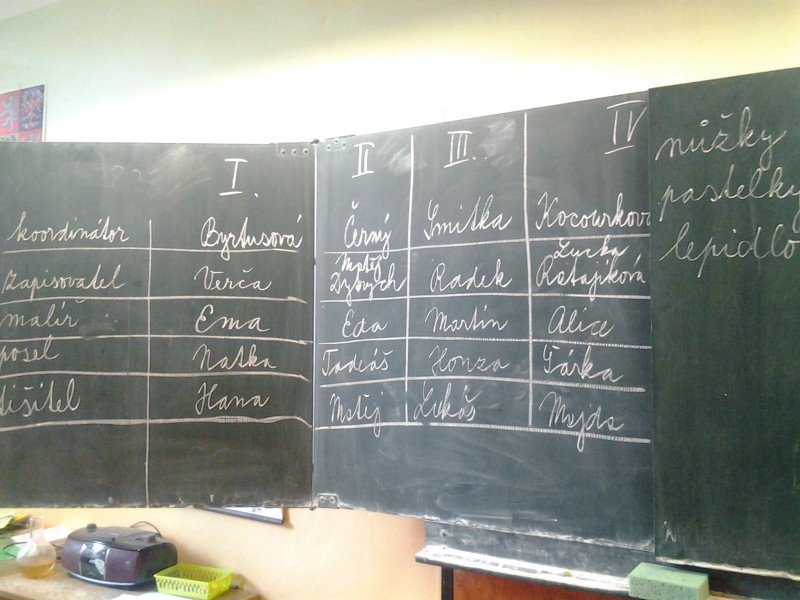 I. II III. IV
koordinátor Byrtusová Černý Smitka Kocourková
zapisovatel Verča Matěj Radek Lucka Ratajíková
malíř Ema Eda Martin Alice
posel Natka Tadeáš Honza Šárka
tišitel Hana Matěj Lukáš Majda
nůžky
pastelky
lepidlo